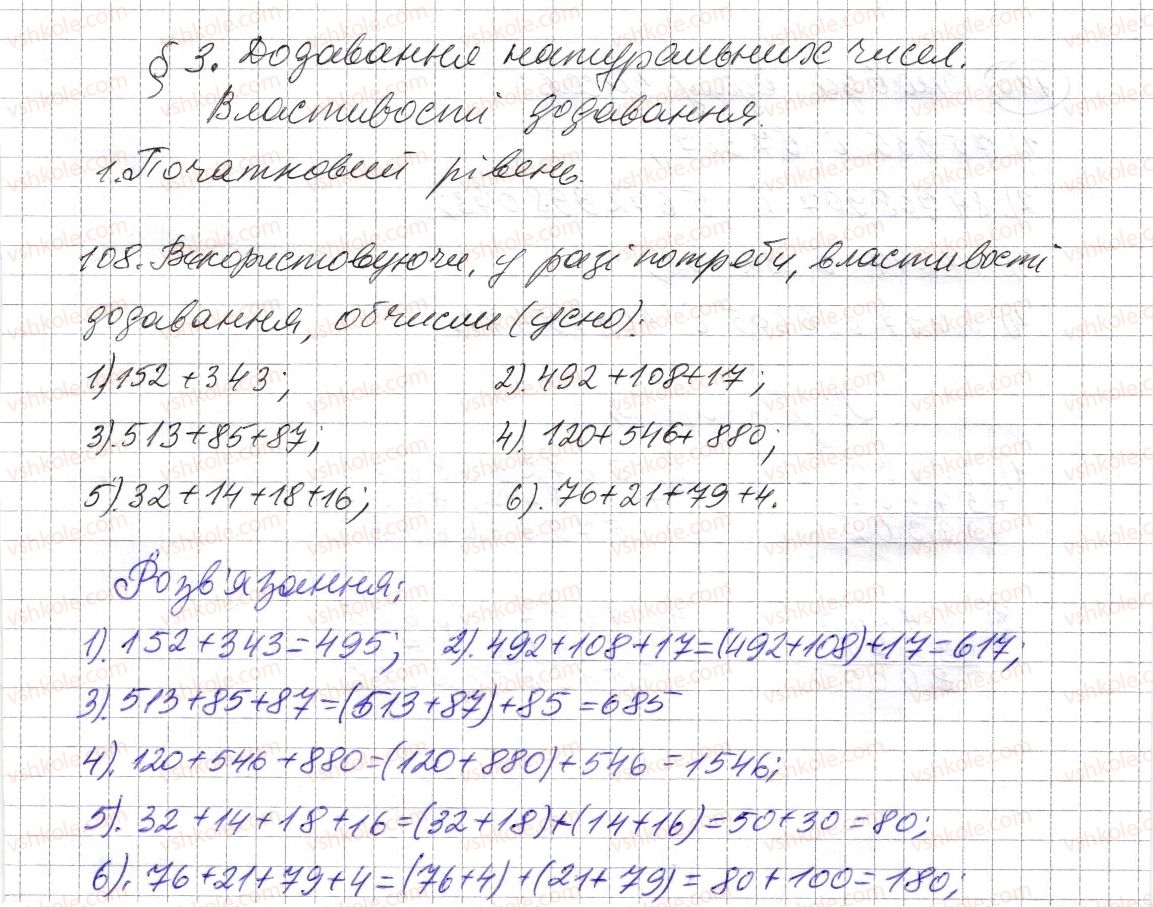 § 3. Додавання натуральних чисел.
Властивості додавання.
1. Початковий рівень.
108. Використовуючи, у разі потреби, властивості
додавання, обчисли (усно):
1). 152 + 343; 2). 492 + 108 + 17;
3). 513 + 85 + 87; 4). 120 + 546 + 880;
5). 32 + 14 + 18 + 16; 6). 76 + 21 + 79 + 4.
Розв'язання:
1). 152 + 343 = 495; 2). 492 + 108 + 17 = (492 + 108) + 17 = 617;
3). 513 + 85 + 87 = (513 + 87) + 85 = 685
4). 120 + 546 + 880 = (120 + 880) + 546 = 1546;
5). 32 + 14 + 18 + 16 = (32 + 18) + (14 + 16) = 50 + 30 = 80;
6). 76 + 21 + 79 + 4 = (76 + 4) + (21 + 79) = 80 + 100 = 180;